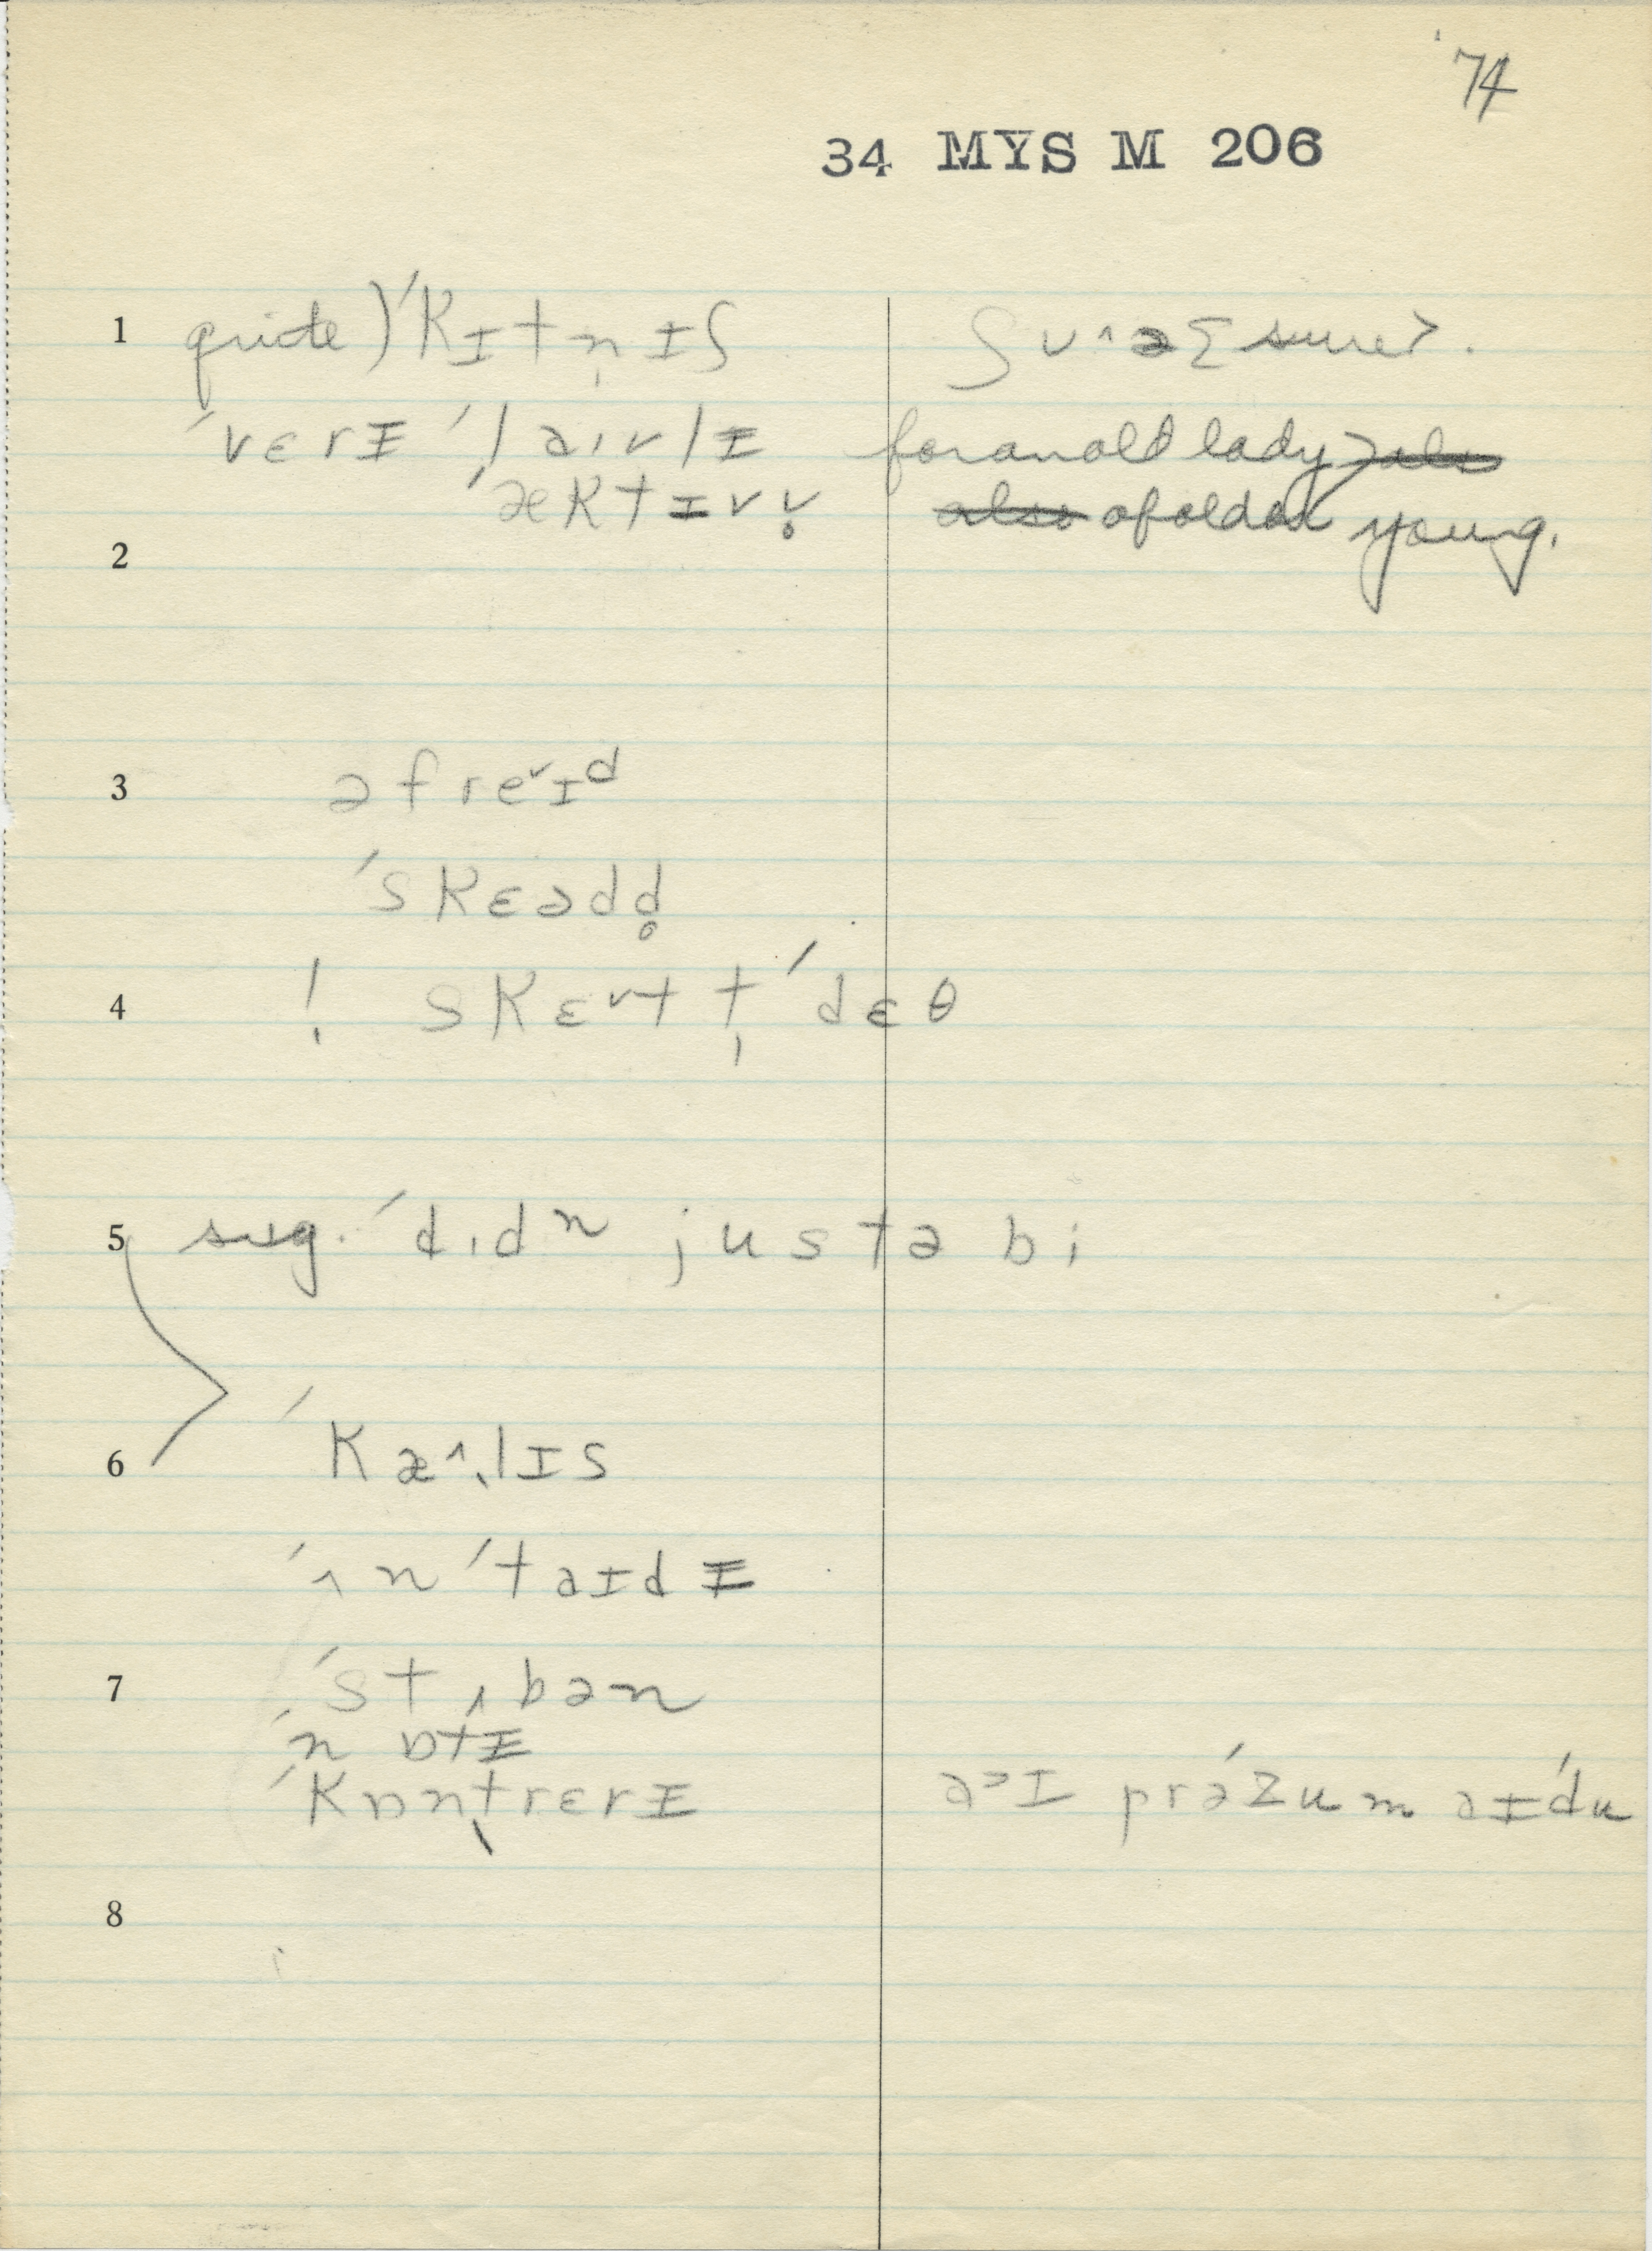 '74
34 MYS M 206
1 quite) ˈkɪtn̩ɪʃ ʃʊ^ə [sure].
ˈvɛrɨ ˈlaɪvlɨ for an old lady
ˈæktɪvv̥ also of old and young.
2
3 əfreˇɪd
ˈskɛədd̥
4 ! skɛˇt t̩ ˈdɛθ
5 sug. ˈdɪdⁿ justə bi
6 ˈkæ^.lɪs
ˈʌnˈtaɪdɨ
7 ˈstʌbən
ˈnɒtɨ
ˈkɒntrɛrɨ a>ɪ prəˈzum aɪˈdu
8